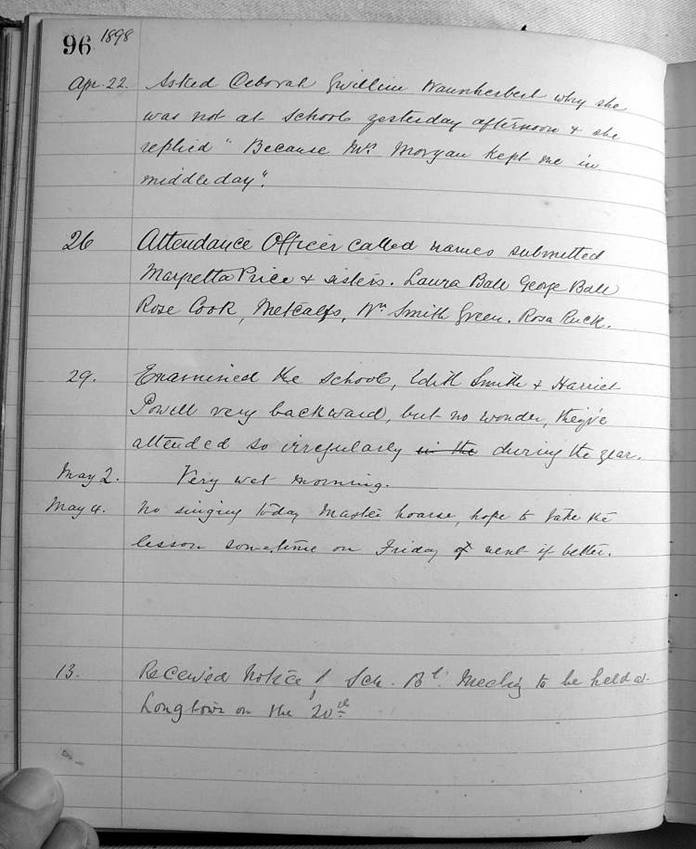 96 1898
Apr. 22. Asked Deborah Gwilliam Waunherbert why she
was not at School yesterday afternoon & she
replied "Because Mrs Morgan kept me in
middle day".
26 Attendance Officer called names submitted
Price & sisters. Laura Ball George Ball
Rose Cook, Metcalfs, Wm Smith Green. Rosa Ruck.
29. Examined the School, Edith Smith & Harriet
Powell very backward, but no wonder, they've
attended so irregularly in the during the year.
May 2. Very wet morning.
May 4. No singing today Master hoarse, hope to take the
lesson sometime on Friday next if better.
13. Received Notice of Sch. Bd. Meeting to be held at
Longtown on the 20th